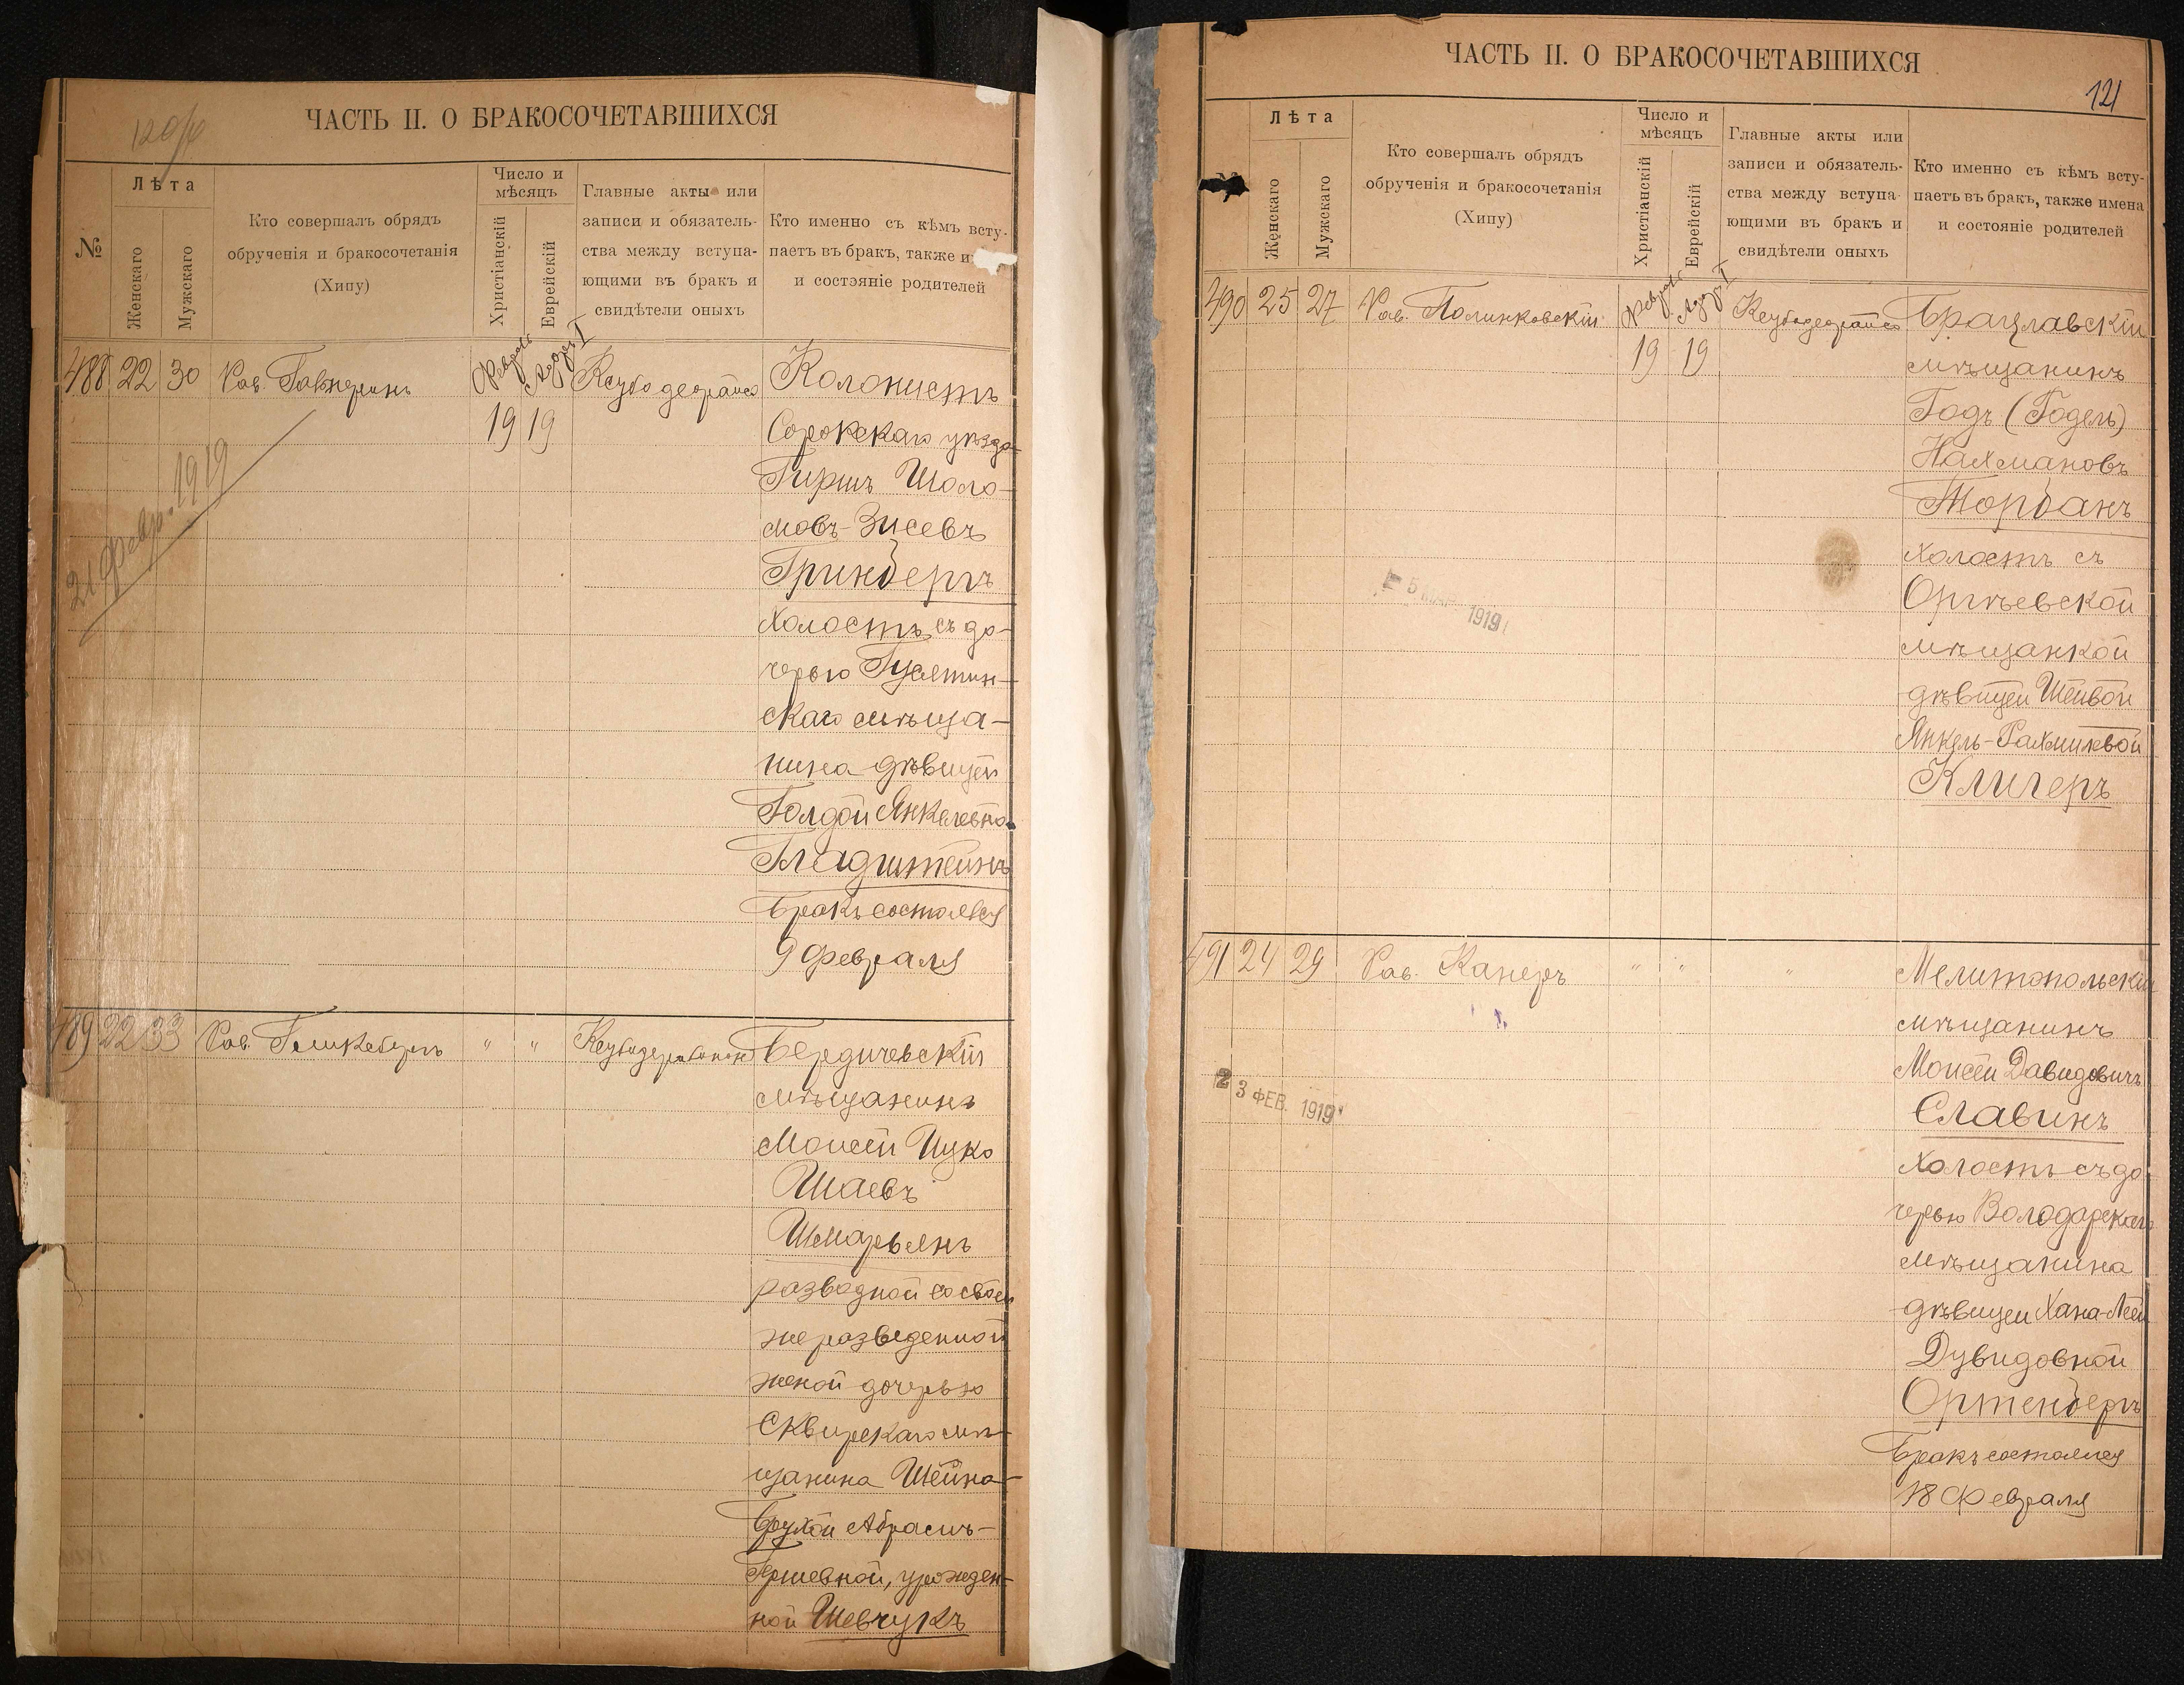 120об
ЧАСТЬ II. О БРАКОСОЧЕТАВШИХСЯ
№
Лѣта
Женскаго
Мужскаго
Кто совершалъ обрядъ
обрученія и бракосочетанія
(Хипу)
Число и
мѣсяцъ
Христіанскій
Еврейскій
Главные акты или
записи и обязатель-
ства между вступа-
ющими въ бракъ и
свидѣтели оныхъ
Кто именно съ кѣмъ всту-
паетъ въ бракъ, также и
и состояніе родителей
488 22 30 Рав.
Февраль Адаръ I
19 19
Колонистъ
Сорокскаго уѣзда
Гиршъ Шоло-
мовъ-Зисевъ
Гринбергъ
холостъ съ до-
черью
скаго мѣща-
нина дѣвицей
Голдой Янкелевной
Гладштейнъ
Бракъ состоялся
9 Февраля
21 Февр. 1919
489 22 33 Рав. " "
Бердичевскій
мѣщанинъ
Моисей Ицко
Шаевъ
Шмарьянъ
разводной со своей
же разведенной
женой дочерью
Сквирскаго мѣ-
щанина Шейна-
Брухой Абрамъ-
Гершевной, урожден-
ной Шевчукъ
ЧАСТЬ II. О БРАКОСОЧЕТАВШИХСЯ
121
Лѣта
Женскаго
Мужскаго
Кто совершалъ обрядъ
обрученія и бракосочетанія
(Хипу)
Число и
мѣсяцъ
Христіанскій
Еврейскій
Главные акты или
записи и обязатель-
ства между вступа-
ющими въ бракъ и
свидѣтели оныхъ
Кто именно съ кѣмъ всту-
паетъ въ бракъ, также имена
и состояніе родителей
490 25 27 Рав. Полинковскій
Февраль Адаръ I
19 19
Брацлавскій
мѣщанинъ
Годъ (Годель)
Нахмановъ
Торбанъ
холостъ съ
Оргѣевской
мѣщанкой
дѣвицей Шейвой
Янкель-Рахмиловой
Клигеръ
5 МАР 1919
491 24 29 Рав. Канеръ " " "
Мелитопольскій
мѣщанинъ
Моисей Давидовичъ
Славинъ
холостъ съ до-
черью Володарскаго
мѣщанина
дѣвицей Хана-Леей
Дувидовной
Ортенбергъ
Бракъ состоялся
18 Февраля
23 ФЕВ. 1919